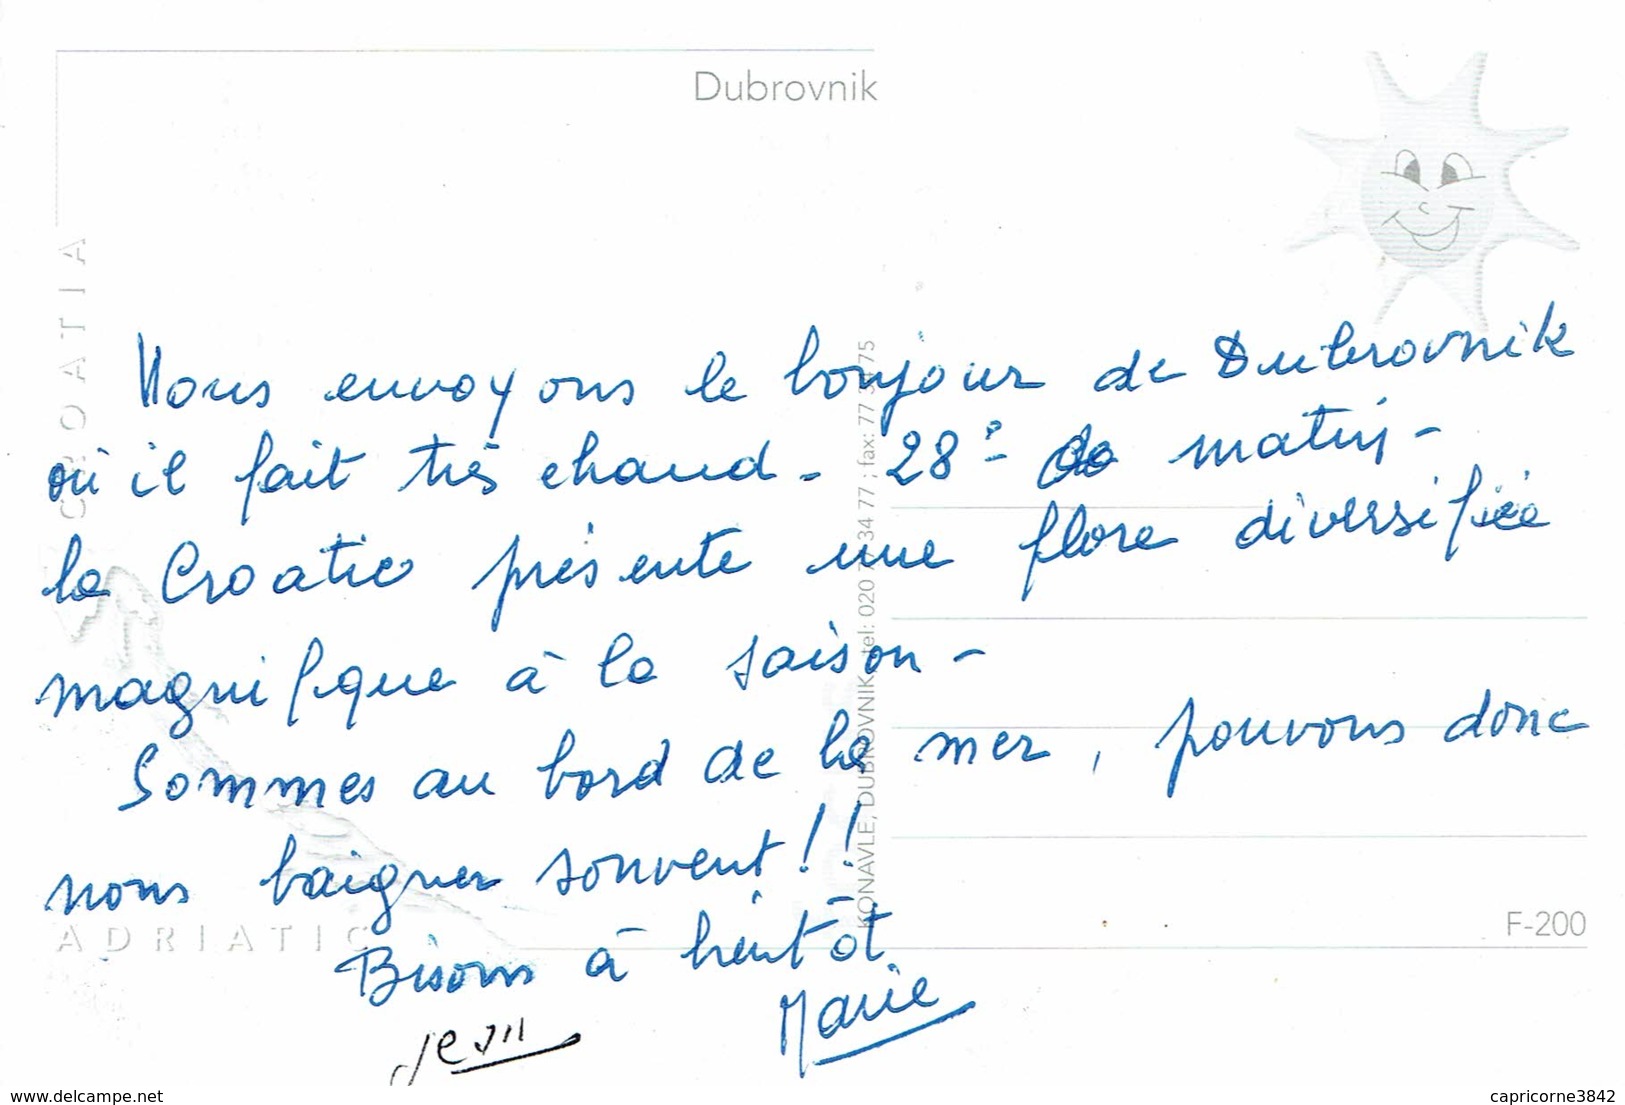 Dubrovnik
CROATIA
Nous envoyons le bonjour de Dubrovnik
où il fait très chaud - 28° - le matin -
la Croatie présente une flore diversifiée
magnifique à la saison -
Sommes au bord de la mer, pouvons donc
nous baigner souvent !!
Bisous à bientôt
Marie
KONAVLE, DUBROVNIK, tel: 020 77 34 77 ; fax: 77
ADRIATIC
F-200
www.delcampe.net
capricorne3842